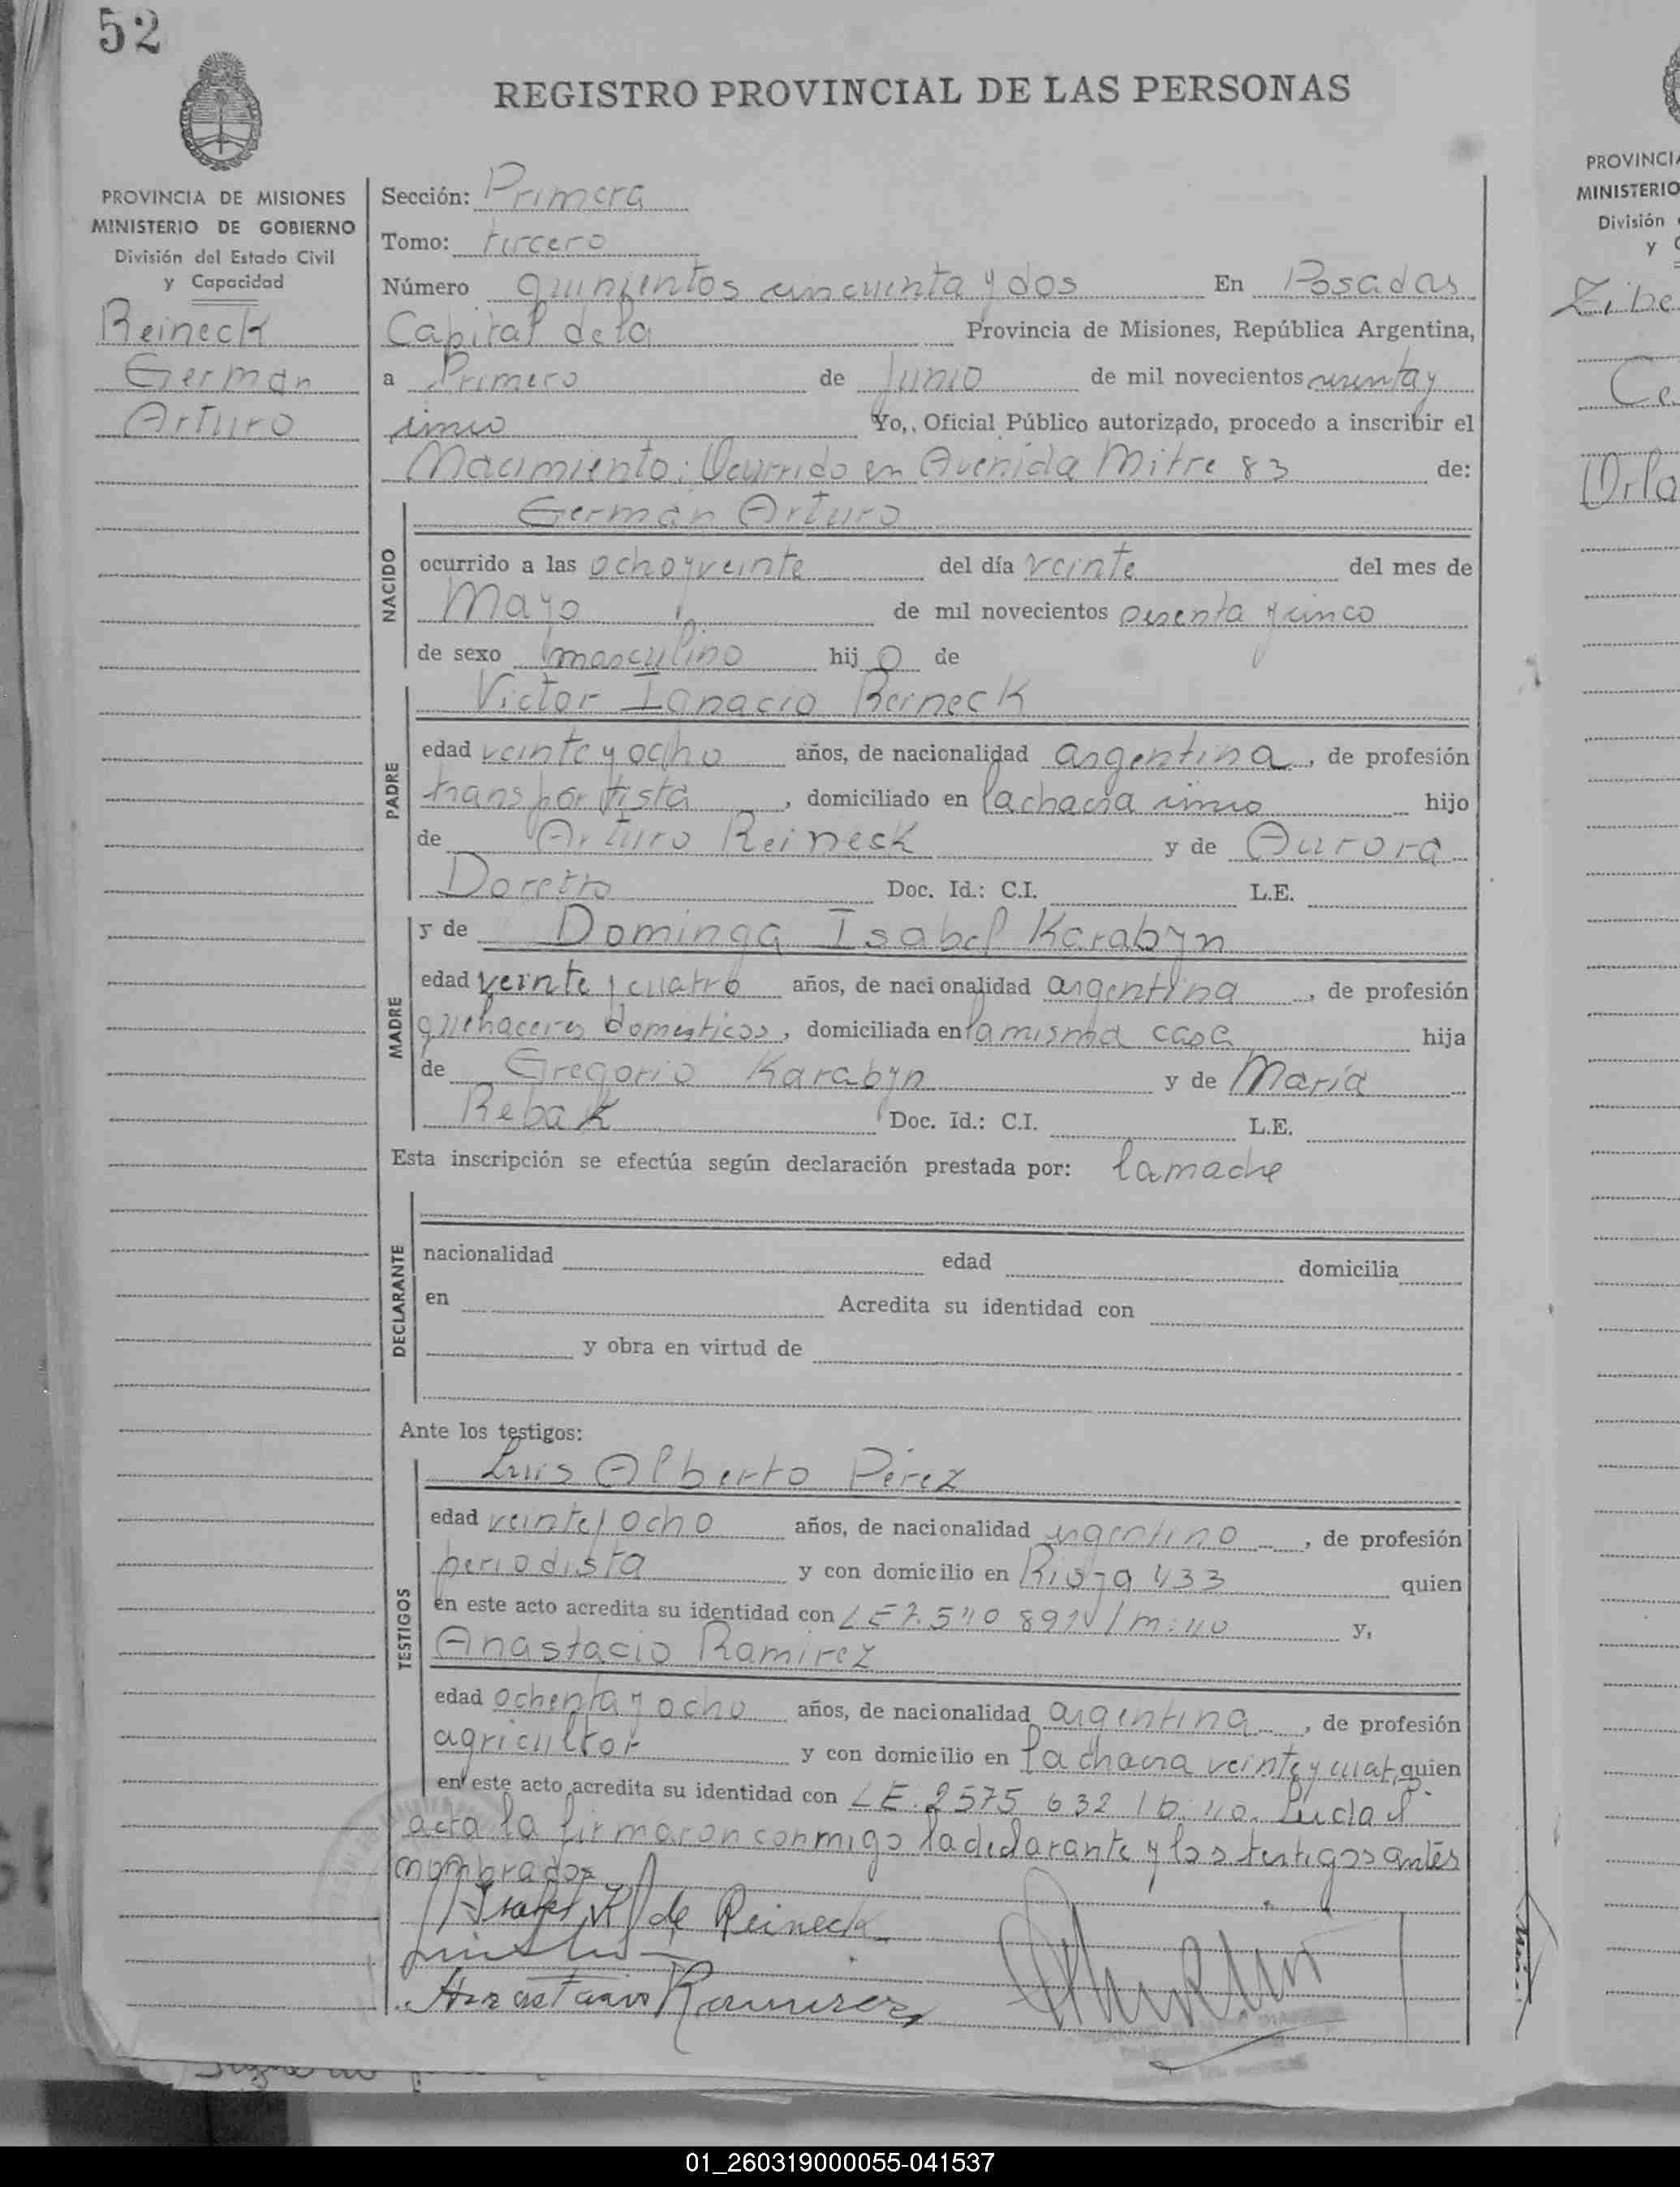 52
REGISTRO PROVINCIAL DE LAS PERSONAS
PROVINCIA DE MISIONES
MINISTERIO DE GOBIERNO
División del Estado Civil
y Capacidad
Reineck
German
Arturo
Sección: Primera
Tomo: tercero
Número quinientos cincuenta y dos En Posadas
Capital de la Provincia de Misiones, República Argentina,
a Primero de Junio de mil novecientos sesenta y
cinco Yo,. Oficial Público autorizado, procedo a inscribir el
Nacimiento: Ocurrido en Avenida Mitre 83 de:
NACIDO
German Arturo
ocurrido a las ocho y veinte del día veinte del mes de
Mayo de mil novecientos sesenta y cinco
de sexo masculino hij o de
PADRE
Victor Ignacio Reineck
edad veinte y ocho años, de nacionalidad argentina, de profesión
transportista, domiciliado en la chacra cinco hijo
de Arturo Reineck y de Aurora
Doretto Doc. Id.: C.I. L.E.
MADRE
y de Dominga Isabel Karabyn
edad veinte y cuatro años, de nacionalidad argentina, de profesión
quehaceres domesticos, domiciliada en la misma casa hija
de Gregorio Karabyn y de María
Rebak Doc. Id.: C.I. L.E.
Esta inscripción se efectúa según declaración prestada por: la madre
DECLARANTE
nacionalidad edad domicilia
en Acredita su identidad con
y obra en virtud de
Ante los testigos:
TESTIGOS
Luis Alberto Pérez
edad veinte y ocho años, de nacionalidad argentino, de profesión
periodista y con domicilio en Rioja 433 quien
en este acto acredita su identidad con LE 7.540 89 / m: 40 y,
Anastacio Ramirez
edad ochenta y ocho años, de nacionalidad argentina, de profesión
agricultor y con domicilio en la chacra veinte y cuat, quien
en este acto acredita su identidad con LE. 2575 632 / D. 40. Leida el
acta la firmaron conmigo la declarante y los testigos antes
nombrados
Isabel K de Reineck
Anastacio Ramirez
PROVINCIA
MINISTERIO
División
y
01_260319000055-041537